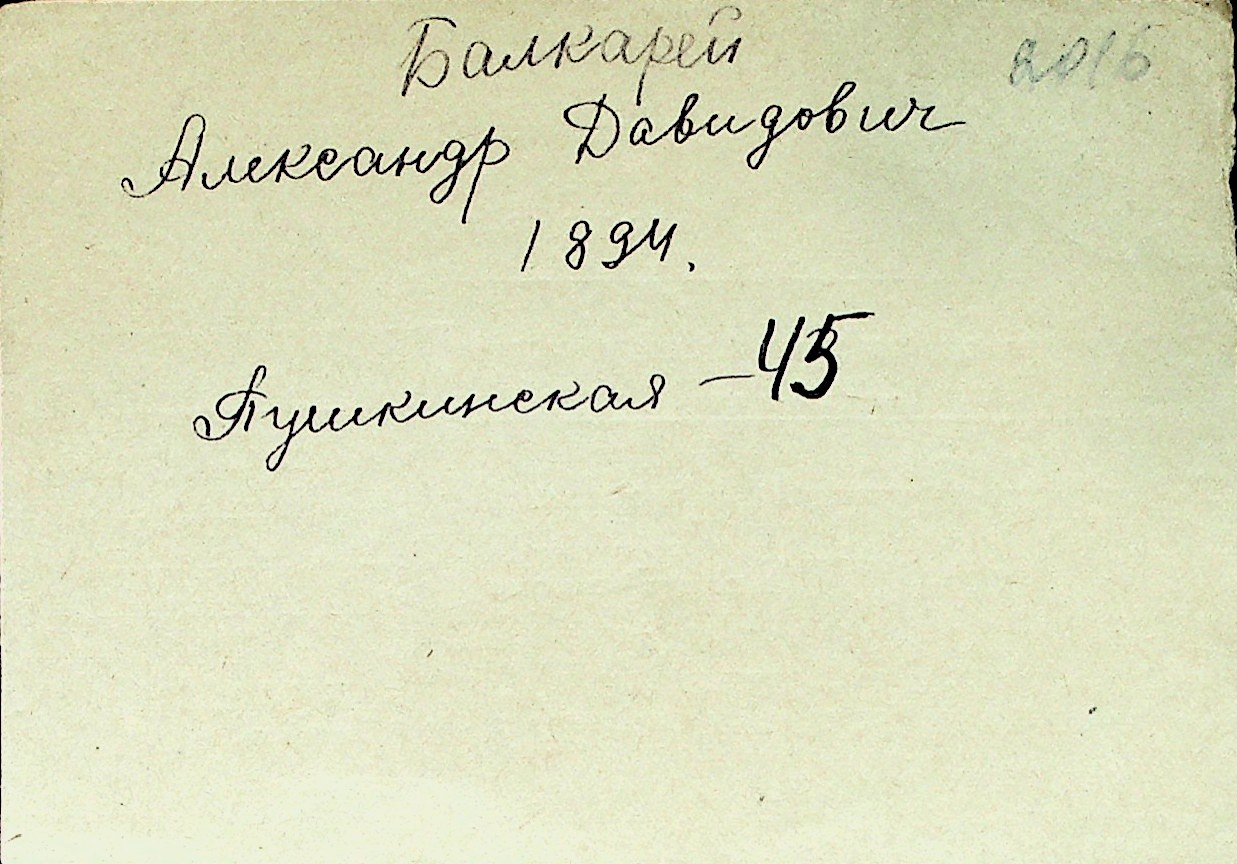 Балкарей 2016
Александр Давидович
1894.
Пушкинская – 45